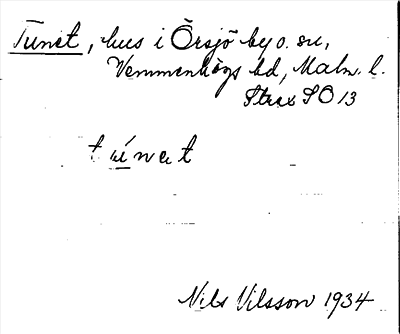 Tunet, hus i Örsjö by o. sn,
Vemmenhögs hd, Malm. l.
Strax SO 13
túnat
Nils Nilsson 1934